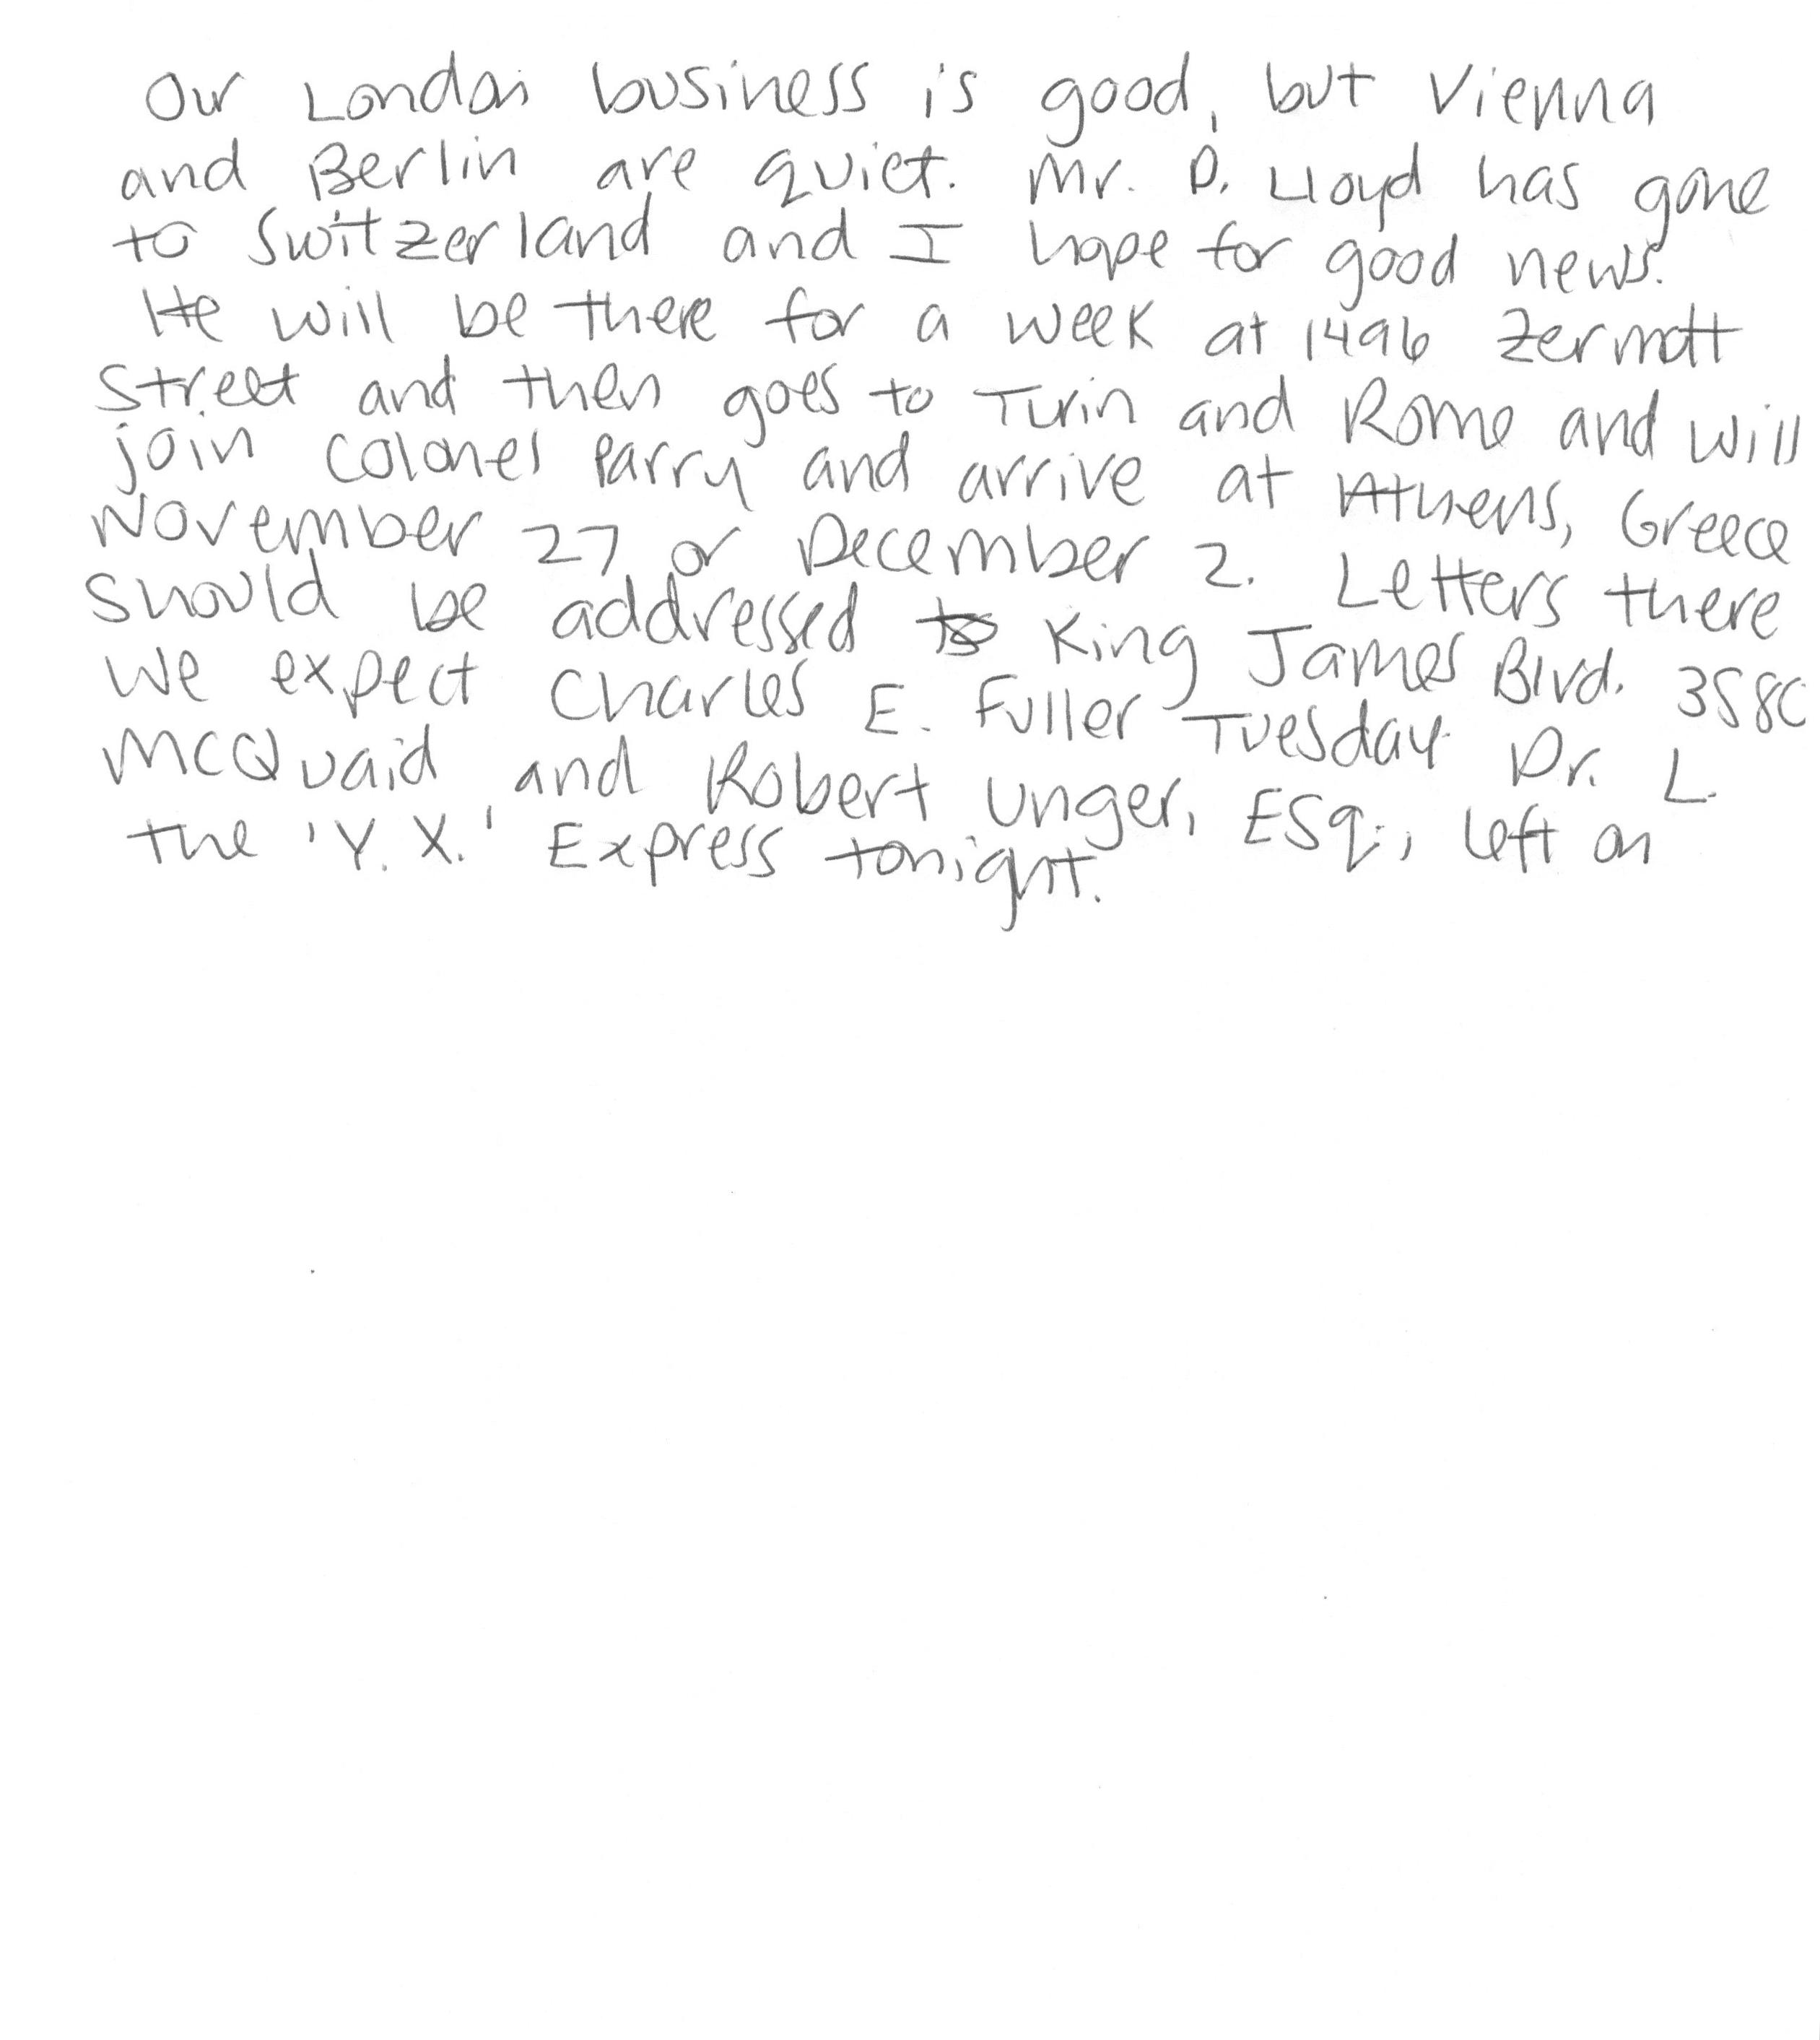 Our London business is good, but Vienna
and Berlin are quiet. Mr. D. Lloyd has gone
to Switzerland and I hope for good news.
He will be there for a week at 1496 Zermott
Street and then goes to Turin and Rome and will
join Colonel Parry and arrive at Athens, Greece
November 27 or December 2. Letters there
should be addressed to King James Blvd. 3580
We expect Charles E. Fuller Tuesday. Dr. L.
McQuaid and Robert Unger, Esq., left on
the 'Y. X.' Express tonight.